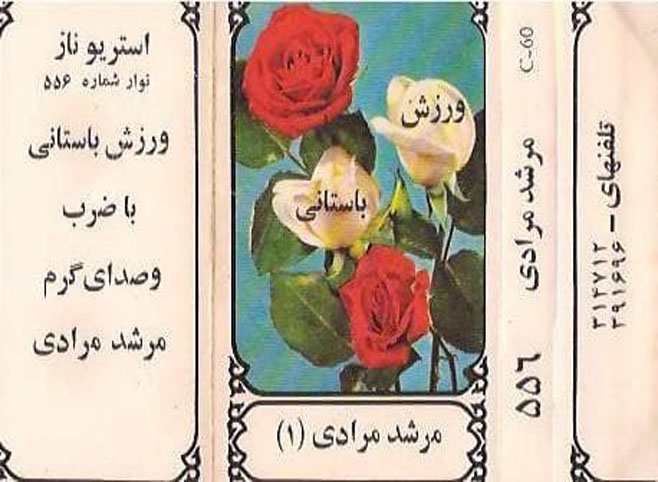 استریو ناز
نوار شماره ۵۵۶
ورزش باستانی
با ضرب
وصدای گرم
مرشد مرادی
ورزش
باستانی
مرشد مرادی (۱)
C-60
مرشد مرادی
۵۵۶
تلفنهای –
۳۱۴۷۱۲
۳۹۱۶۹۶